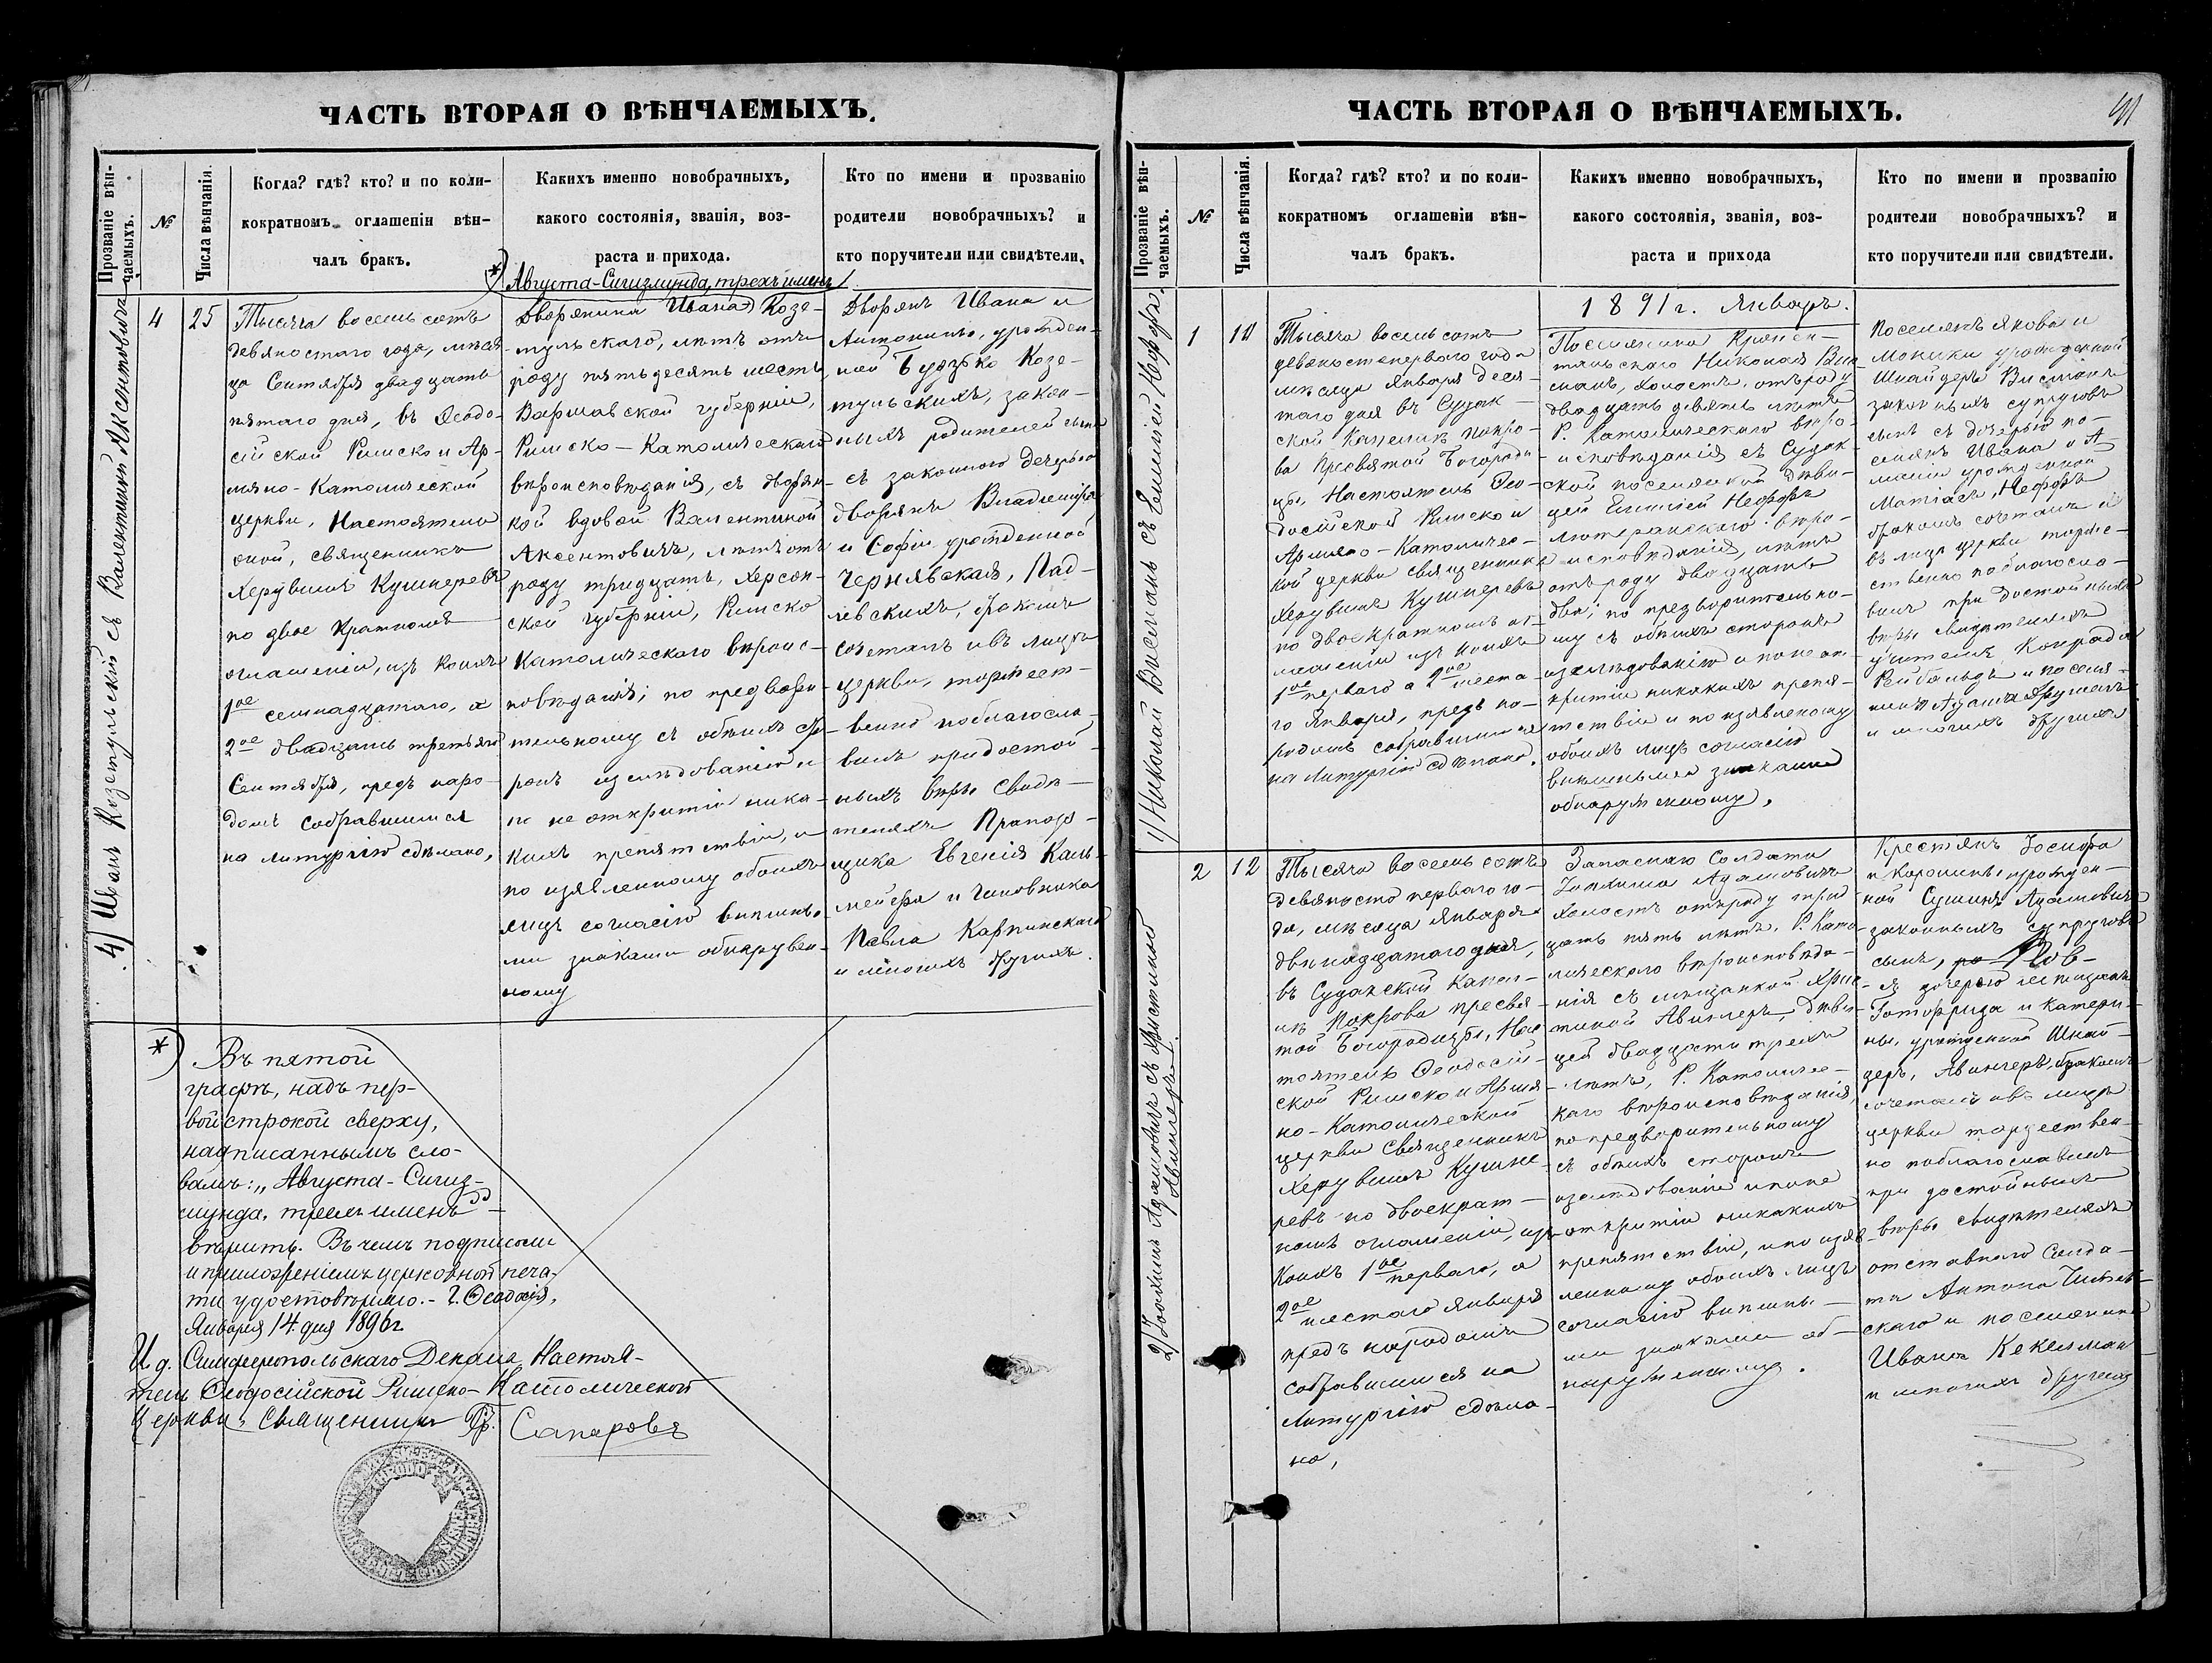 ЧАСТЬ ВТОРАЯ О ВѢНЧАЕМЫХЪ.
Прозваніе вѣн-
чаемыхъ.
№
Числа вѣнчанія.
Когда? гдѣ? кто? и по коли-
кократномъ оглашеніи вѣн-
чалъ бракъ.
Какихъ именно новобрачныхъ,
какого состоянія, званія, воз-
раста и прихода.
Кто по имени и прозванію
родители новобрачныхъ? и
кто поручители или свидѣтели.
4) Иванъ Козетульскій съ Валентиной Аксентовичъ
4
25
Тысяча восемь сотъ
девяностаго года, мѣся
ца Сентября двадцать
пятаго дня, въ Ѳеодо-
сійской Римско и Ар-
мяно-Католической
церкви, Настоятель
оной, священникъ
Херувимъ Кушнеревъ
по двое кратномъ
оглашеніи, изъ коихъ
1ое семнадцатаго, а
2ое двадцать третьяго
Сентября, предъ наро-
домъ собравшимся
на литургію сдѣлано,
*) Августа-Сигизмунда, трехъ именъ
Дворянина Ивана Козе-
тульскаго, лѣтъ отъ
роду пятьдесятъ шесть,
Варшавской губерніи,
Римско-Католическаго
вѣроисповѣданія, съ дворян-
кой вдовой Валентиной
Аксентовичъ, лѣтъ отъ
роду тридцать, Херсон-
ской губерніи, Римско
Католическаго вѣроис-
повѣданія; по предвари-
тельному съ обѣихъ сто-
ронъ изслѣдованію и
по не открытіи ника-
кихъ препятствій, и
по изявленному обоихъ
лицъ согласію внѣшнѣ-
ми знаками обнаружен-
ному
Дворянъ Ивана и
Антонины, урожден-
ной Будзько Козе-
тульскихъ, закон-
ныхъ родителей сына
съ законною дочерью
дворянъ Владиміра
и Софіи урожденной
Чернявская, Пад-
левскихъ, бракомъ
сочеталъ и въ лицѣ
церкви, торжест-
венно поблагосла-
вилъ при достой-
ныхъ вѣры Свидѣ-
теляхъ Прапор-
щика Евгенія Каль-
мейера и Чиновника
Павла Карпинскаго
и многихъ другихъ.
*) Въ пятой
графѣ, надъ пер-
вой строкой сверху,
надписаннымъ сло-
вамъ: „Августа-Сигиз-
мунда, трехъ именъ"
вѣрить. Въ чемъ подписомъ
и приложеніемъ церковной печа-
ти удостовѣряю.- Г. Ѳеодосія,
Января 14 дня 1896 г.
И. д. Симферопольскаго Декана, Настоя-
тель Ѳеодосійской Римско-Католической
Церкви, Священникъ Гр. Сапаровъ

ЧАСТЬ ВТОРАЯ О ВѢНЧАЕМЫХЪ.
Прозваніе вѣн-
чаемыхъ.
№
Числа вѣнчанія.
Когда? гдѣ? кто? и по коли-
кократномъ оглашеніи вѣн-
чалъ бракъ.
Какихъ именно новобрачныхъ,
какого состоянія, званія, воз-
раста и прихода
Кто по имени и прозванію
родители новобрачныхъ? и
кто поручители или свидѣтели.
1891 г. Январь.
1) Николай Висманъ съ Емиліей Нефоръ.
1
10
Тысяча восемьсотъ
девяностоперваго года
мѣсяца Января деся-
таго дня въ Судак-
ской Капеликѣ Покро-
ва Пресвятой Богороди-
цы, Настоятель Ѳео-
досійской Римско и
Армяно-Католичес-
кой церкви священникъ
Херувимъ Кушнеревъ
по двоекратномъ ог-
лашеніи изъ коихъ
1ое перваго а 2ое шеста-
го Января, предъ на-
родомъ собравшимся
на Литургію сдѣлано.
Поселянина Кронен-
тальскаго Николая Вис-
манъ, холостъ, отъ роду
двадцать девять лѣтъ
Р. Католическаго вѣро-
исповѣданія съ Судак-
ской поселянкой дѣви-
цей Емиліей Нефоръ
лютеранскаго вѣро-
исповѣданія, лѣтъ
отъ роду двадцать
два; по предварительно-
му съ обѣихъ сторонъ
изслѣдованію и по не от-
крытіи никакихъ препя-
тствій и по изявленому
обоихъ лицъ согласію
внѣшными знаками
обнаруженному.
Поселянъ Якова и
Моники урожденной
Шнайдеръ Висманъ
законныхъ супруговъ
сынъ съ дочерью по-
селянъ Ивана и А
маліи урожденной
Матіасъ, Нефоръ
бракомъ сочеталъ и
въ лицѣ церкви торже-
ственно поблагосло-
вилъ при достойныхъ
вѣры свидѣтеляхъ
учителя Конрада
Рейбальдъ и поселя-
нина Адама
и многихъ другихъ
2) Іоахимъ Адамовичъ съ Христиной
Авингеръ.
2
12
Тысяча восемь сотъ
девяносто перваго го-
да, мѣсяца Января
двѣнадцатаго дня,
въ Судакской Капел-
лѣ Покрова пресвя-
той Богородицы, Нас-
тоятель Ѳеодосій-
ской Римско и Армя-
но-Католической
церкви Священникъ
Херувимъ Кушне-
ревъ по двоекрат-
номъ оглашеніи, изъ
коихъ 1ое перваго, а
2ое шестаго Января
предъ народомъ
собравшимся на
Литургію сдѣла-
но,
Запаснаго Солдата
Іоахима Адамовичъ
холостъ отъ роду трид
цать пять лѣтъ, Р. Като-
лическаго вѣроисповѣда-
нія съ мѣщанкой Хрис-
тиной Авингеръ, дѣви-
цей двадцати трехъ
лѣтъ, Р. Католичес-
каго вѣроисповѣданія,
по предварительному
съ обѣихъ сторонъ
изслѣдованіи и по не
открытіи никакихъ
препятствій, и по изяв-
ленному обоихъ лицъ
согласію внѣшны-
ми знаками об-
наруженному.
Крестянъ Іосифа
и Каролины урожден-
ной Сушинъ Адамовичъ
законныхъ супруговъ
сынъ,
съ дочерью мѣщанъ
Готфрида и Катери-
ны, урожденной Шнай-
деръ, Авингеръ, бракомъ
сочеталъ и въ лицѣ
церкви торжествен-
но поблагославилъ
при достойныхъ
вѣры свидѣтеляхъ
отставнаго Солда-
та Антона
скаго и поселянина
Ивана Кекелман
и многихъ другихъ